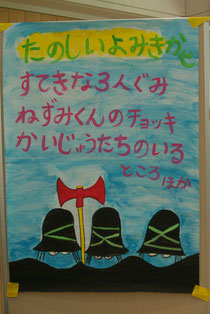 たのしいよみきかせ
すてきな3人ぐみ
ねずみくんのチョッキ
かいじゅうたちのいる
ところ ほか